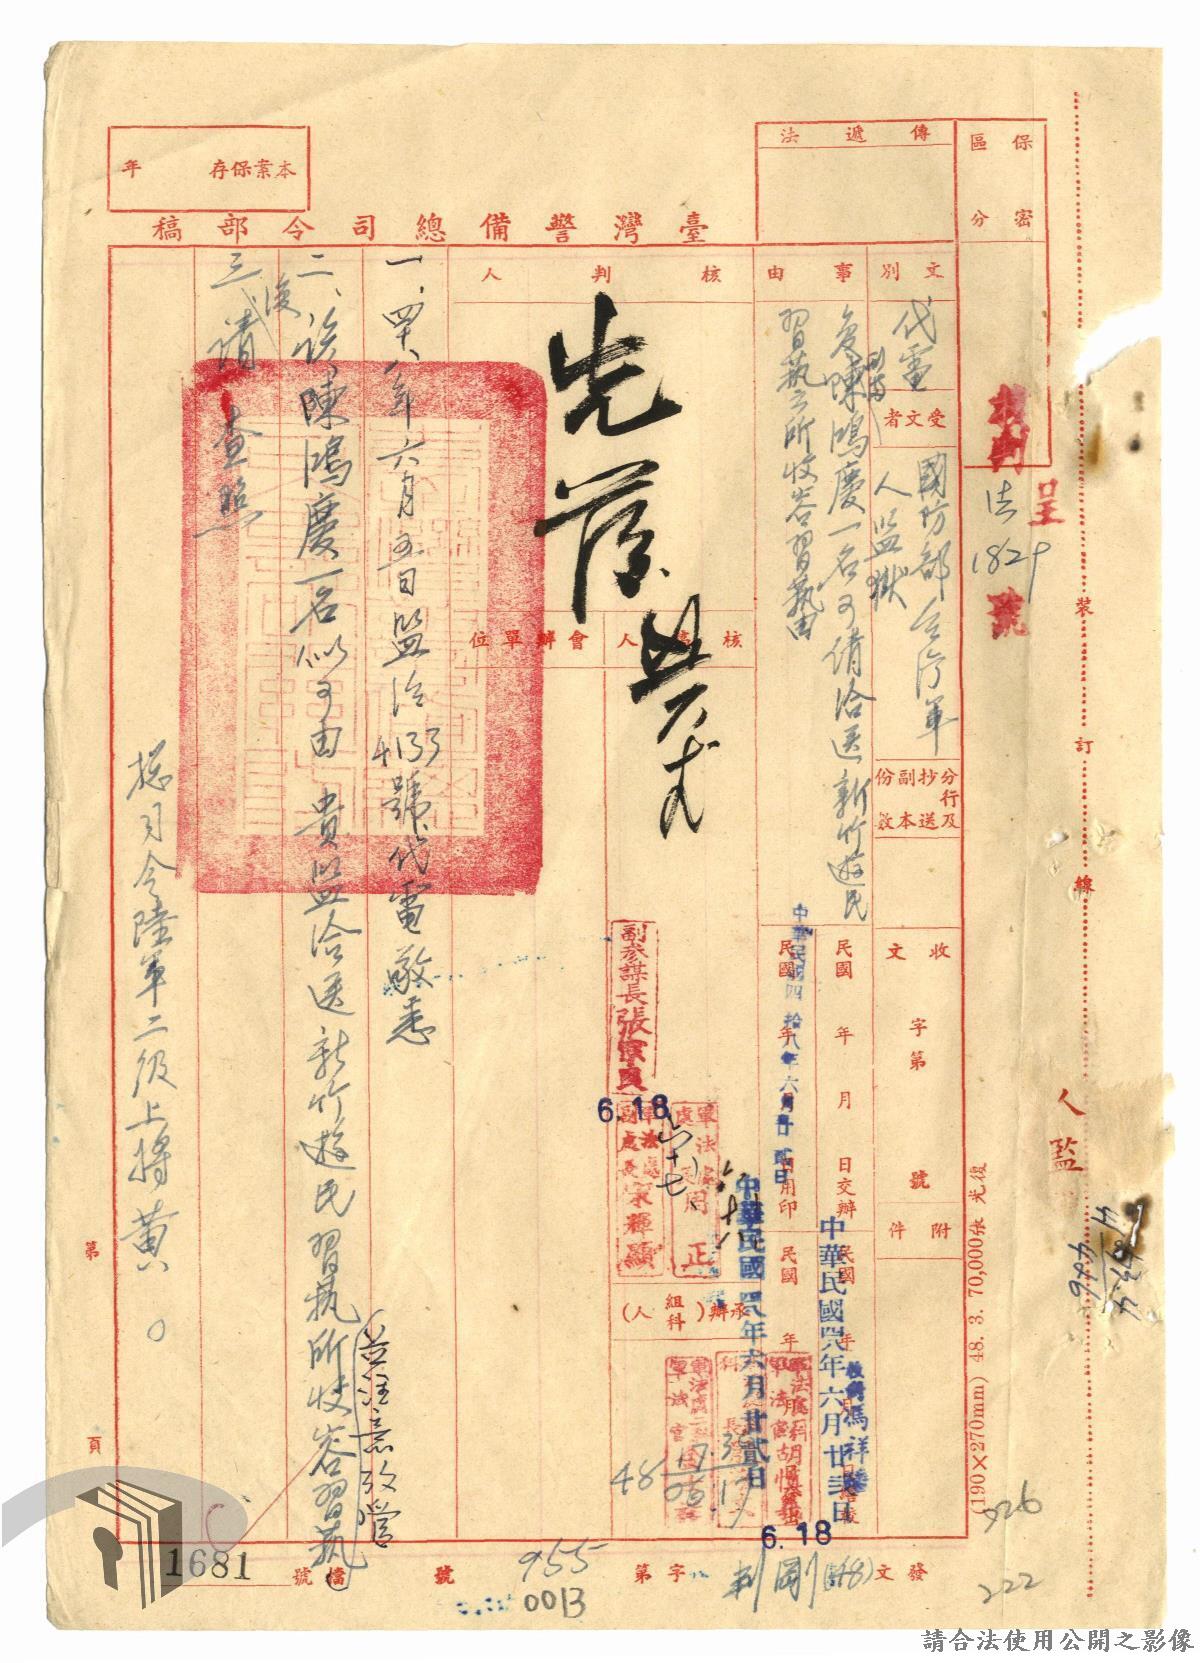 保密
區分
傳遞法
本案保存 年
臺灣警備總司令部稿
呈
法1829
號
文別
代電
受文者
國防部台灣軍
人監獄
分行及
抄送
副本
份數
收文
字第
號
附件
事由
復陳鴻慶一名可備洽送新竹遊民
習藝所收容習藝由
民國 年 月 日交辦
民國 年 月 日用印
中華民國四拾八年六月廿貳日
中華民國四八年六月廿三日
中華民國四八年六月廿貳日
核判人
會辦單位
副參謀長張
6.18
軍法處
處長周正
軍法處
副處長宋輝顯
承辦(組科)人
6.18
一、四十八年六月五日監洽4133號代電敬悉
二、該陳鴻慶一名似可由 貴監洽送新竹遊民習執所收容習執
並注意改營
三、復請 查照
總司令陸軍二級上將黃〇
第 頁
裝訂線
人監
(190×270mm) 48. 3. 70,000張 光復
發文(48)
字第
955
號
0013
檔號
1681
926
222
請合法使用公開之影像